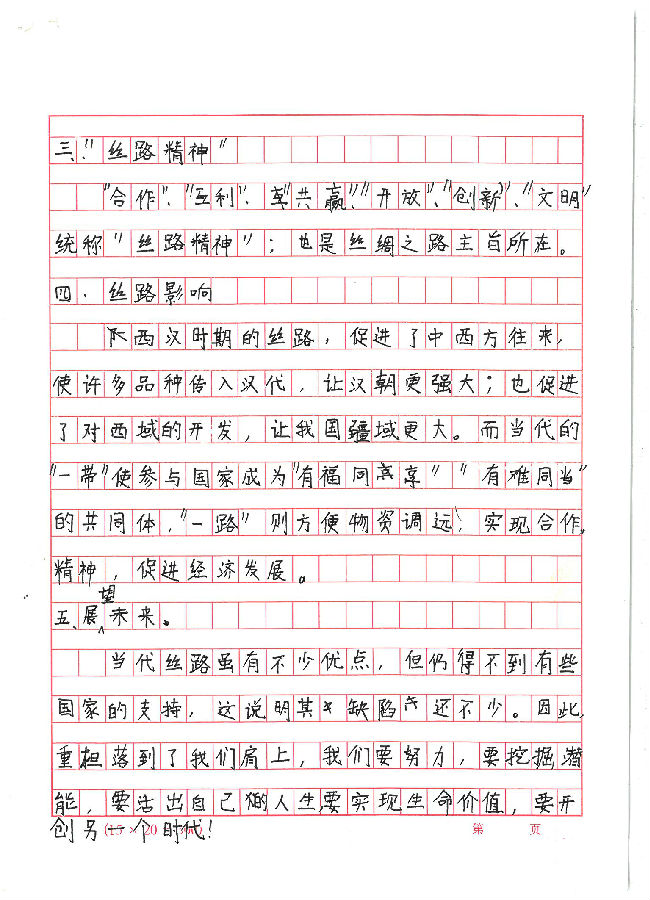 三、"丝路精神"
"合作"、"互利"、"共赢"、"开放"、"创新"、"文明"
统称"丝路精神"；也是丝绸之路主旨所在。
四、丝路影响
西汉时期的丝路，促进了中西方往来，
使许多品种传入汉代，让汉朝更强大；也促进
了对西域的开发，让我国疆域更大。而当代的
"一带"使参与国家成为"有福同享""有难同当"
的共同体，"一路"则方便物资调远，实现合作
精神，促进经济发展。
五、展望未来。
当代丝路虽有不少优点，但仍得不到有些
国家的支持，这说明其缺陷还不少。因此，
重担落到了我们肩上，我们要努力，要挖掘潜
能，要活出自己的人生，要实现生命价值，要开
创另一个时代！
第 页